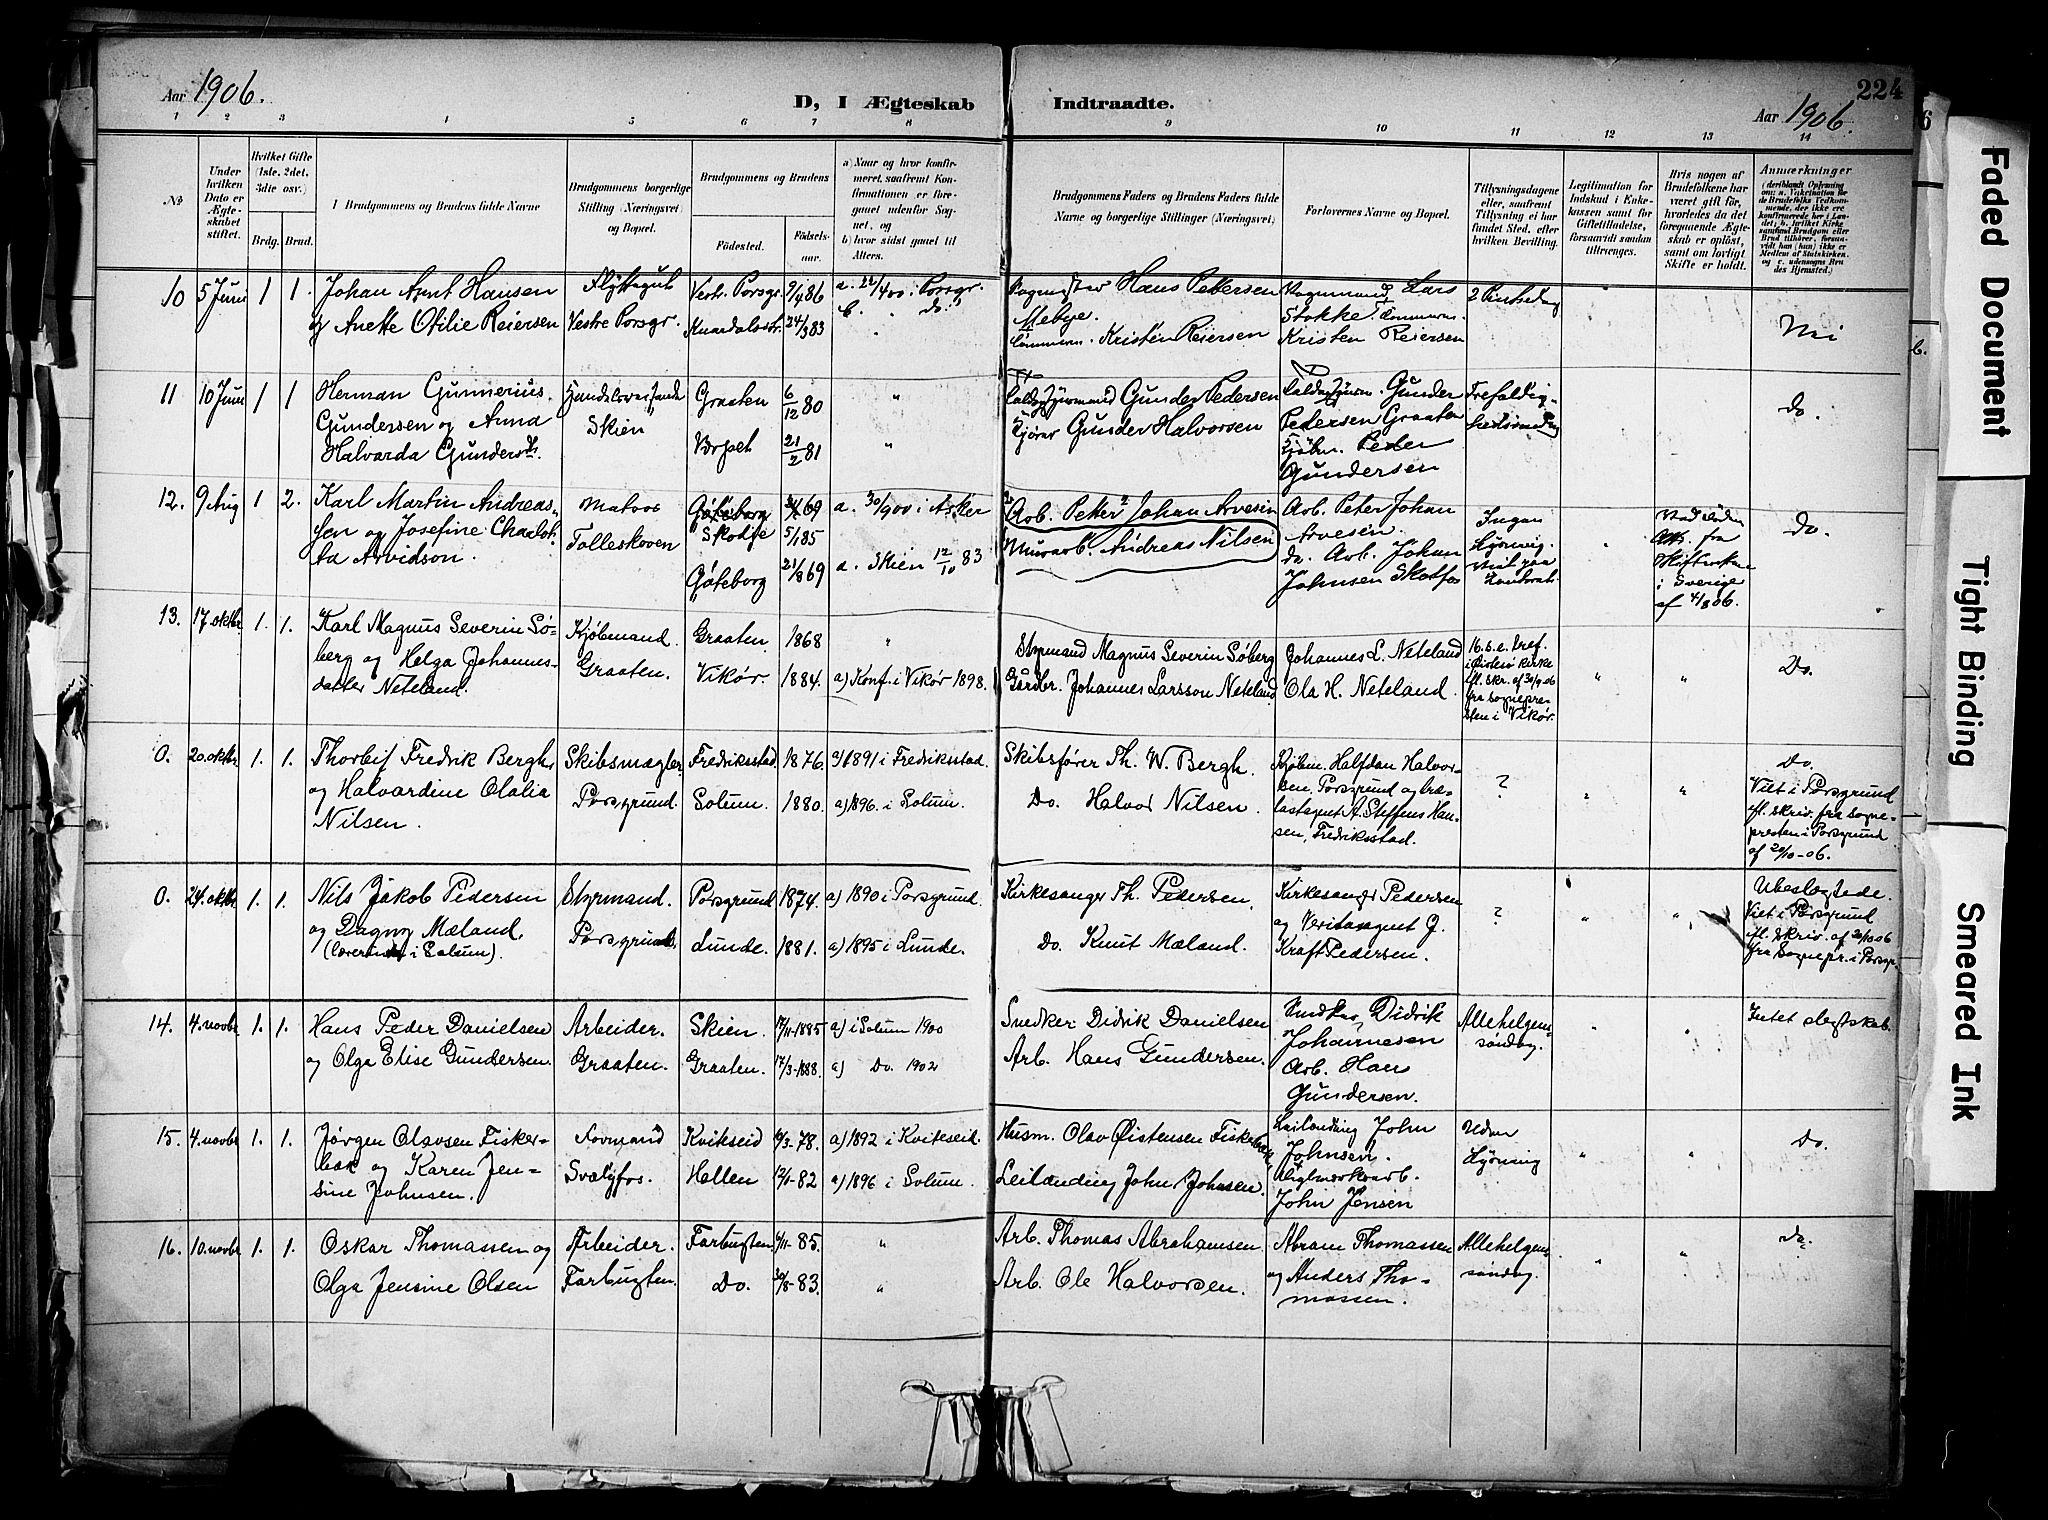 Aar 1906.
D, I Ægteskab
Indtraadte.
Aar 1906.
224
1 2 3 4 5 6 7 8 9 10 11 12 13 14
No
Under hvilken Dato er Ægteskabet stiftet.
Hvilket Gifte (1ste, 2det, 3die osv.)
Brdg. Brud.
Brudgommens og Brudens fulde Navne
Brudgommens borgerlige Stilling (Næringsvei) og Bopæl.
Brudgommens og Brudens
Fødested.
Fødselsaar.
a) Naar og hvor konfirmeret, saafremt Konfirmationen er foregaaet udenfor Sognet, og
b) hvor sidst gaaet til Alters.
Brudgommens Faders og Brudens Faders fulde Navne og borgerlige Stillinger (Næringsvei)
Forlovernes Navne og Bopæl.
Tillysningsdagene eller, saafremt Tillysning ei har fundet Sted, efter hvilken Bevilling.
Legitimation for Indskud i Enkekassen samt for Giftetilladelse, forsaavidt saadan tiltrænges.
Hvis nogen af Brudefolkene har været gift før, hvorledes da det foregaaende Ægteskab er opløst, samt om lovligt Skifte er holdt.
Anmærkninger
10 5 Juni 1 1.
Johan Arnt Hansen
og Anette Otilie Reiersen
Vestre Porsgr.
Vest. Porsgr.
9/4 86
24/3 83
a. 22/4 00 i Porsgr.
b. " do.
Hans Pettersen
Kristen Reiersen
Lars
Stokke
Kristen Reiersen
2 Pintsedag
Nei
11 10 Juni 1 1
Herman Gunnerius
Gundersen og Anna
Halvarda Gundersdt.
Skien
Graaten
6/12 80
21/2 81
Gunder Pedersen
Gunder Halvorsen
Gunder
Pedersen Graaten
Kjøbm. Peder
Gundersen
do.
12. 9 Aug 1 2.
Karl Martin Andreas-
sen og Josefine Charlot-
ta Arvidson.
Matros
Tolleskoven
Göteborg
Skodje
Göteborg
5/1 85
21/8 69
a. 30/9 00 i Asker
a. Skien 12/10 83
Arb. Petter Johan Arvesen
Murarb. Andreas Nilsen
Arb. Peter Johan
Arvesen.
do. Arb. Johan
Johnsen Skotfos
fra
i Sverige
af 4/8 06.
Do.
13. 17. oktbr. 1. 1.
Karl Magnus Severin Sø-
berg og Helga Johannes-
datter Neteland.
Kjøbmand.
Graaten.
Graaten.
Vikør.
1868
1884.
a) Konf. i Vikør 1898.
Styrmand Magnus Severin Søberg
Gårdbr. Johannes Larsson Neteland
Johannes L. Neteland
Ola H. Neteland.
16. s. e. tref.
i Øistesø kirke
ifl. skr. af 30/9 06
fra sognepre-
sten i Vikør.
Do.
0. 20. oktbr. 1. 1.
Thorleif Fredrik Bergh
og Halvardine Olalia
Nilsen.
Skibsmægler
Porsgrund.
Fredriksstad
Solum.
1876.
1880.
a) 1891 i Fredriksstad.
a) 1896. i Solum.
Skibsfører Th. W. Bergh.
Do. Halvor Nilsen.
Kjøbm. Halfdan Halvor-
sen. Porsgrund og træ-
lastagent A. Steffens Han-
sen, Fredriksstad.
?
Do.
Viet i Porsgrund
ifl. skriv. fra sogne-
presten i Porsgrund
af 20/10-06.
0. 24. oktbr. 1. 1.
Nils Jakob Pedersen
og Dagny Mæland.
(lærerinde i Solum).
Styrmand.
Porsgrund.
Porsgrund
Lunde.
1874.
1881.
a) 1890 i Porsgrund.
a) 1895 i Lunde.
Kirkesanger Th. Pedersen.
Do. Knut Mæland.
Kirkesanger Pedersen
og Veritasagent G.
Kraft Pedersen.
?
Ubeslægtede.
Viet i Porsgrund
ifl. Skriv. af 20/10 06
fra Sognepr. i Porsgr.
14. 4. novbr. 1. 1.
Hans Peder Danielsen
og Olga Elise Gundersen.
Arbeider.
Graaten.
Skien.
Graaten.
17/11-1885
17/3-1888.
a) i Solum 1900
a) Do. 1902
Snedker Didrik Danielsen
Arb. Hans Gundersen.
Snedker Didrik
Johannesen
Arb. Hans
Gundersen.
Allehelgens-
søndag.
Intet slegtskab.
15. 4. novbr. 1. 1.
Jørgen Olavsen Fisker-
bæk og Karen Jen-
sine Johnsen.
Formand
Svælgfos.
Kviteseid
Hellen
a) 1892 i Kviteseid.
a) 1896 i Solum.
Husm. Olav Øistensen Fiskebæk.
Leilænding John Johnsen.
Leilænding John
Johnsen.
John Jensen
Uden
Lysning
Do.
16. 10. novbr. 1. 1.
Oskar Thomassen og
Olga Jensine Olsen
Arbeider.
Farbugten.
Farbugten.
Do.
85.
30/8-83.
Arb. Thomas Abrahamsen.
Arb. Ole Halvorsen.
Abram Thomassen
og Anders Tho-
massen.
Allehelgens
søndag.
Do.
Faded Document
Tight Binding
Smeared Ink